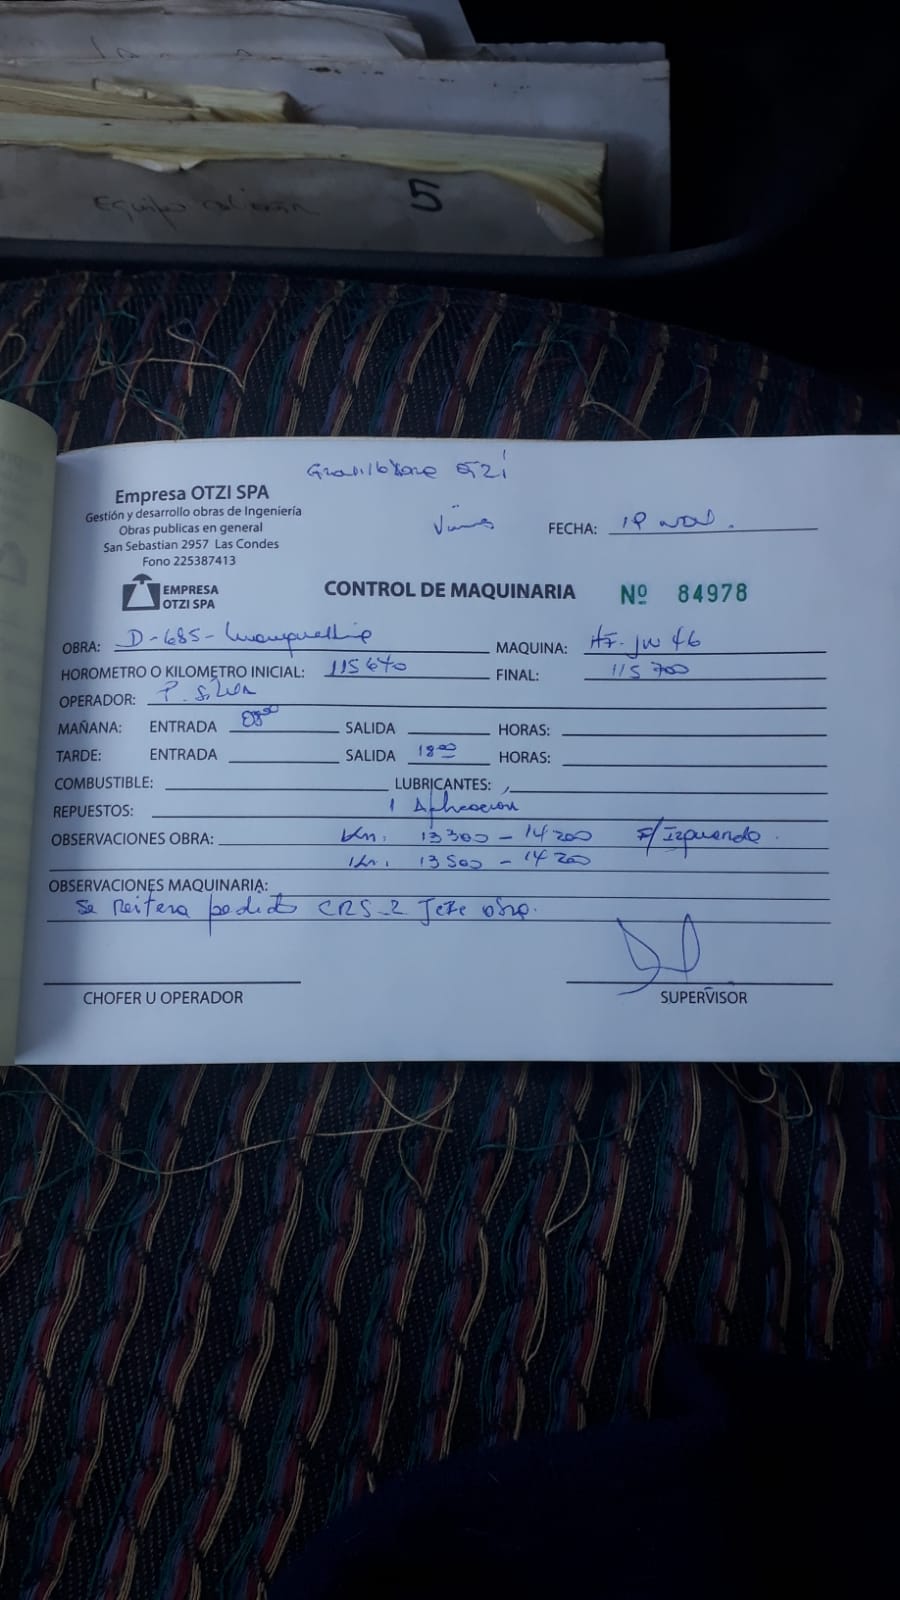 5
Equipo
Gravilladora OTZI
Empresa OTZI SPA
Gestión y desarrollo obras de Ingeniería
Obras publicas en general
San Sebastian 2957 Las Condes
Fono 225387413
EMPRESA
OTZI SPA
FECHA: 19 NOV.
CONTROL DE MAQUINARIA Nº 84978
OBRA: D-685-
MAQUINA: HF-JW 46
HOROMETRO O KILOMETRO INICIAL: 115640 FINAL: 115700
OPERADOR: P. Silva
MAÑANA: ENTRADA 08:00 SALIDA HORAS:
TARDE: ENTRADA SALIDA 18:00 HORAS:
COMBUSTIBLE: LUBRICANTES:
REPUESTOS: 1 Aplicacion
OBSERVACIONES OBRA: Km. 13300 - 14200 F/Izquierda.
Km. 13500 - 14200
OBSERVACIONES MAQUINARIA:
Se reitera pedido CRS-2 Jefe obra.
CHOFER U OPERADOR SUPERVISOR